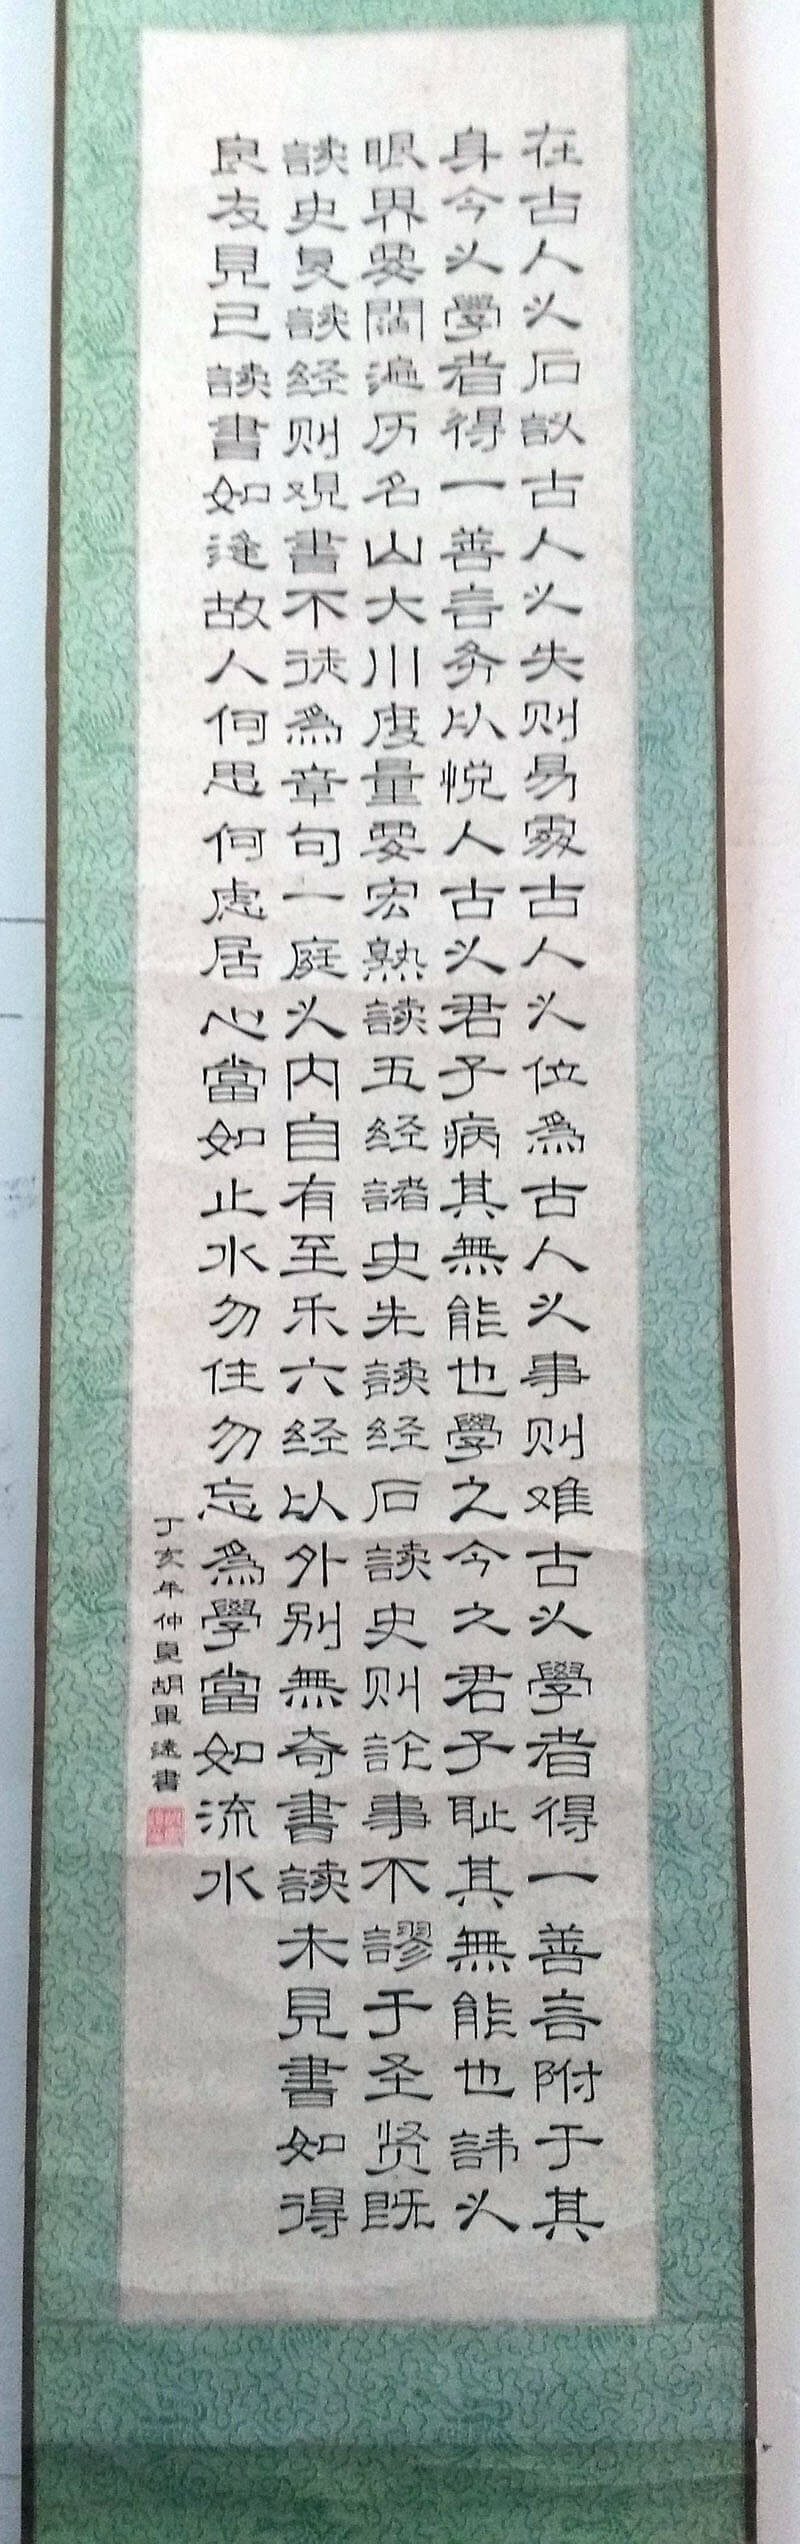 在古人之后议古人之失则易處古人之位為古人之事则难古之學者得一善言附于其
身今之學者得一善言务以悦人古之君子病其無能也學之今之君子耻其無能也諱之
眼界要闊遍历名山大川度量要宏熟读五经諸史先读经后读史则论事不謬于圣贤既
读史复读经则观書不徒為章句一庭之内自有至乐六经以外别無奇書读未見書如得
良友見已读書如逢故人何思何慮居心當如止水勿住勿忘為學當如流水
丁亥年仲夏胡軍遠書